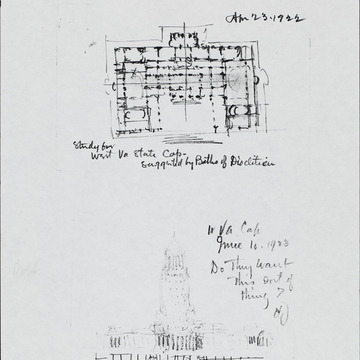 Apr 23 · 1922
Study for
West Va State Cap -
Suggested by Baths of Diocletian
W Va Cap
June 10 · 1923
Do They Want
this sort of
thing ?